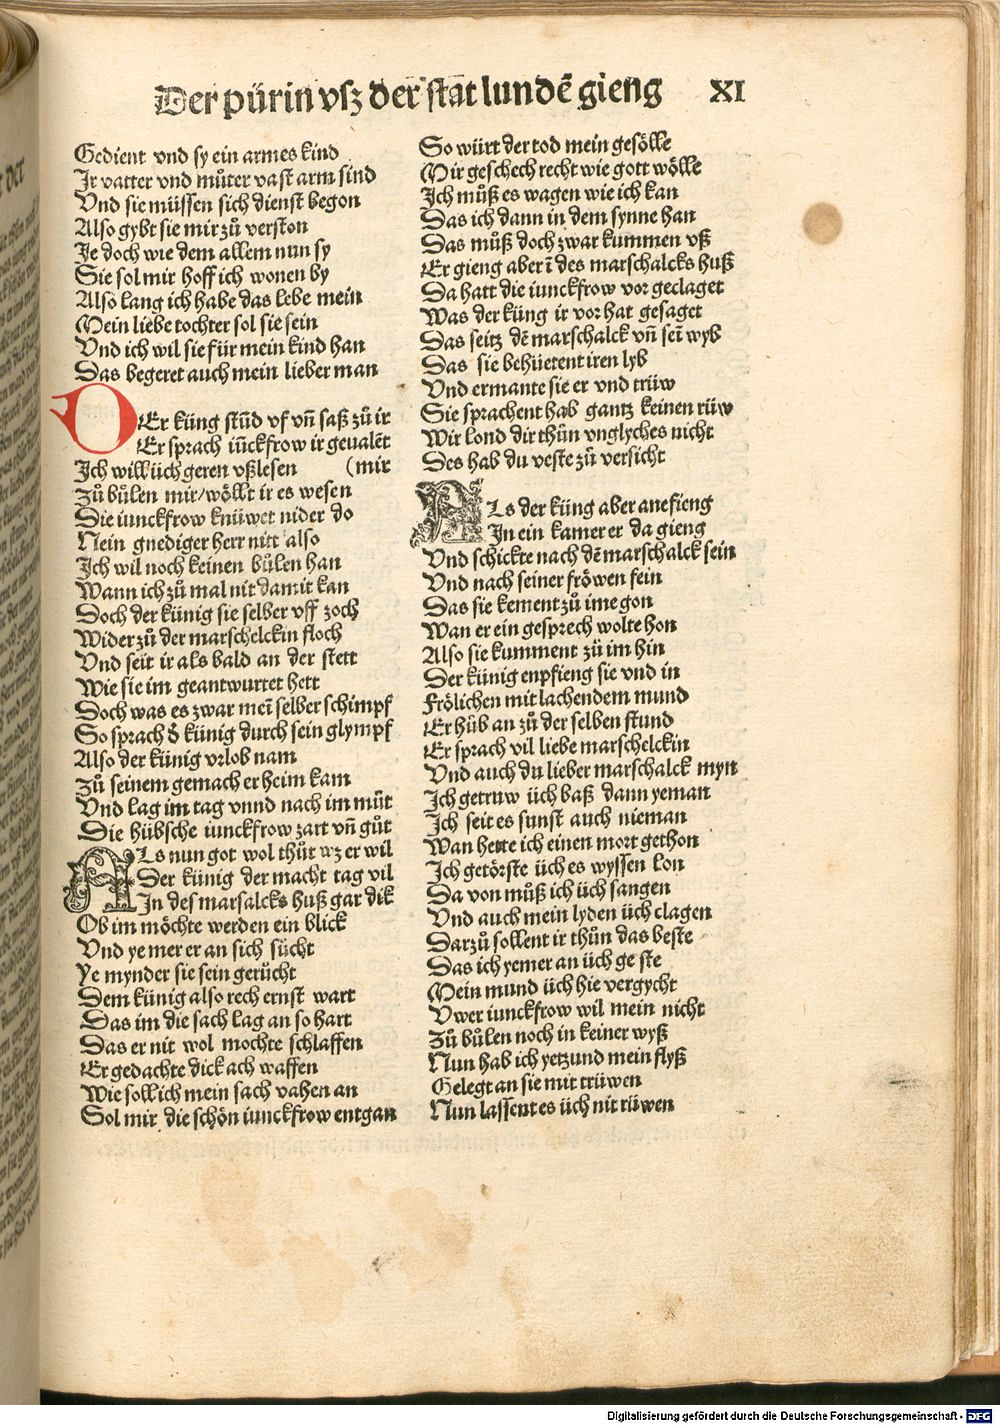 Der pürin vsz der stat lundē gieng XI
Gedient vnd sy ein armes kind
Ir vatter vnd můter vast arm sind
Vnd sie müssen sich dienst begon
Also gybt sie mir zů verston
Je doch wie dem allem nun sy
Sie sol mir hoff ich wonen by
Also lang ich habe das lebe mein
Mein liebe tochter sol sie sein
Vnd ich wil sie für mein kind han
Das begeret auch mein lieber man
DEr küng stůd vf vñ saß zů ir
Er sprach iūckfrow ir geualēt
Ich will üch geren vßlesen (mir
Zů bůlen mir/ wöllt ir es wesen
Die iunckfrow knüwet nider do
Nein gnediger herr nitt also
Ich wil noch keinen bůlen han
Wann ich zů mal nit damit kan
Doch der künig sie selber vff zoch
Wider zů der marschelckin floch
Vnd seit ir als bald an der stett
Wie sie im geantwurtet hett
Doch was es zwar meī selber schimpf
So sprach d̄ künig durch sein glympf
Also der künig vrlob nam
Zů seinem gemach er heim kam
Vnd lag im tag vnnd nach im můt
Die hübsche iunckfrow zart vñ gůt
ALs nun got wol thůt wz er wil
Der künig der macht tag vil
In des marsalcks huß gar dik
Ob im möchte werden ein blick
Vnd ye mer er an sich sücht
Ye mynder sie sein gerůcht
Dem künig also rech ernst wart
Das im die sach lag an so hart
Das er nit wol mochte schlaffen
Er gedachte dick ach waffen
Wie soll ich mein sach vahen an
Sol mir die schön iunckfrow entgan
So würt der tod mein gesölle
Mir geschech recht wie gott wölle
Ich můß es wagen wie ich kan
Das ich dann in dem synne han
Das můß doch zwar kummen vß
Er gieng aber ī des marschalcks huß
Da hatt die iunckfrow vor geclaget
Was der küng ir vor hat gesaget
Das seitz dē marschalck vñ seī wyb
Das sie behüetent iren lyb
Vnd ermante sie er vnd trüw
Sie sprachent hab gantz keinen rüw
Wir lond dir thůn vnglyches nicht
Des hab du veste zů versicht
ALs der küng aber anefieng
In ein kamer er da gieng
Vnd schickte nach dē marschalck sein
Vnd nach seiner fröwen fein
Das sie kement zů ime gon
Wan er ein gesprech wolte hon
Also sie kumment zů im hin
Der künig enpfieng sie vnd in
Frölichen mit lachendem mund
Er hůb an zů der selben stund
Er sprach vil liebe marschelckin
Vnd auch du lieber marschalck myn
Ich getruw üch baß dann yeman
Ich seit es sunst auch nieman
Wan hette ich einen mort gethon
Ich getörste üch es wyssen lon
Da von můß ich üch sangen
Vnd auch mein lyden üch clagen
Darzů sollent ir thůn das beste
Das ich yemer an üch ge ste
Mein mund üch hie vergycht
Vwer iunckfrow wil mein nicht
Zů bůlen noch in keiner wyß
Nun hab ich yetzund mein flyß
Gelegt an sie mit trüwen
Nun lassent es üch nit rüwen
Digitalisierung gefördert durch die Deutsche Forschungsgemeinschaft - DFG